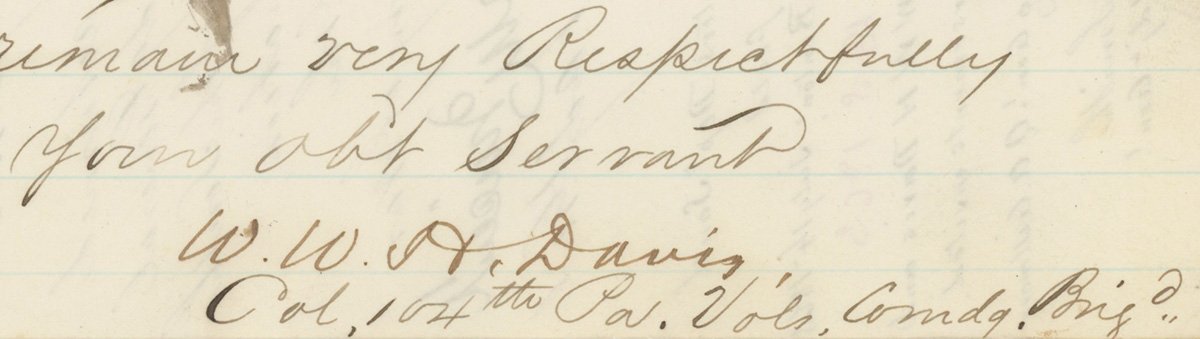 remain very Respectfully
Your Obt Servant
W. W. H. Davis,
Col, 104th Pa. Vols, Comdg. Brigd.,